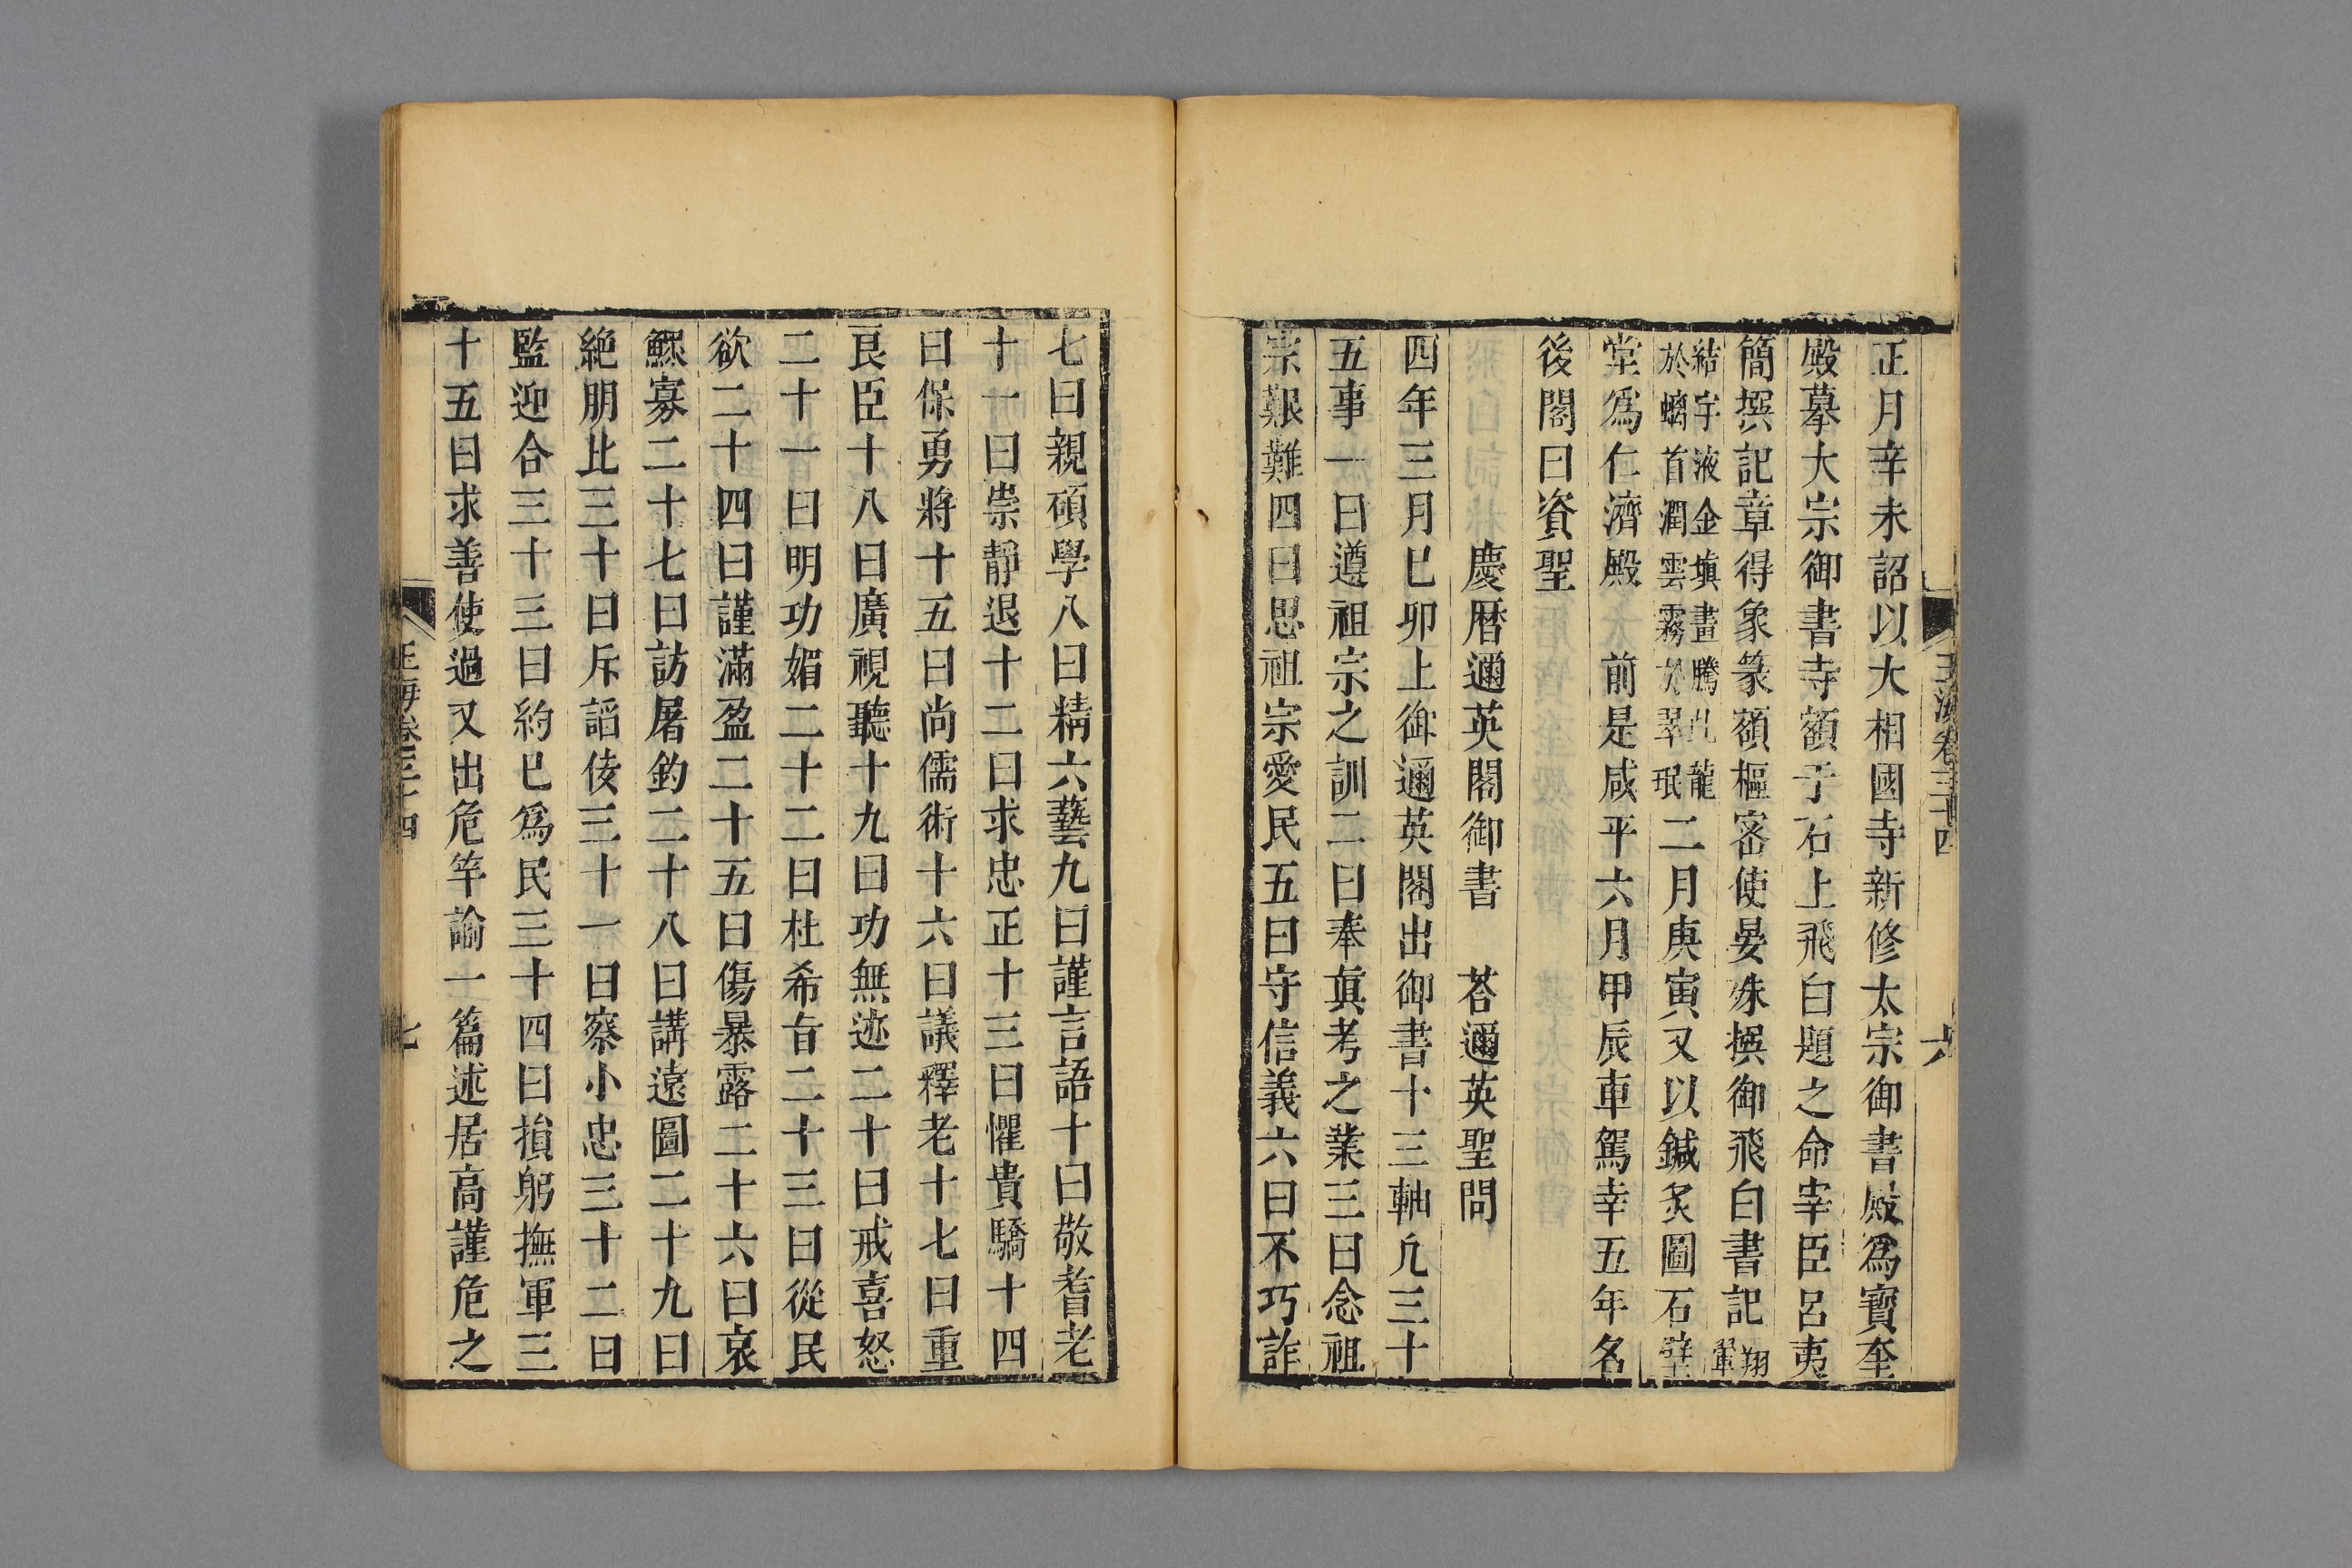 玉海卷三十四
六
正月辛未詔以大相國寺新修太宗御書殿爲寶奎
殿摹大宗御書寺額于石上飛白題之命宰臣呂夷
簡撰記章得象篆額樞密使晏殊撰御飛白書記翔鸞
結字液金塡畫騰虬龍
於螭首潤雲霧於翠珉二月庚寅又以鍼炙圖石壁
堂爲仁濟殿 前是咸平六月甲辰車駕幸五年名
後閣曰資聖
慶曆邇英閣御書 荅邇英聖問
四年三月巳卯上御邇英閣出御書十三軸凢三十
五事一曰遵祖宗之訓二曰奉眞考之業三曰念祖
崇艱難四曰思祖宗愛民五曰守信義六曰不巧詐
七曰親碩學八曰精六藝九曰謹言語十曰敬耆老
十一曰崇靜退十二曰求忠正十三曰懼貴驕十四
曰保勇將十五曰尚儒術十六曰議釋老十七曰重
良臣十八曰廣視聽十九曰功無迹二十曰戒喜怒
二十一曰明功媚二十二曰杜希旨二十三曰從民
欲二十四曰謹滿盈二十五曰傷暴露二十六曰哀
鰥寡二十七曰訪屠釣二十八曰講遠圖二十九曰
絶朋比三十曰斥謟佞三十一曰察小忠三十二曰
監迎合三十三曰約巳爲民三十四曰損躬撫軍三
十五曰求善使過又出危竿論一篇述居高謹危之
玉海卷三十四
七